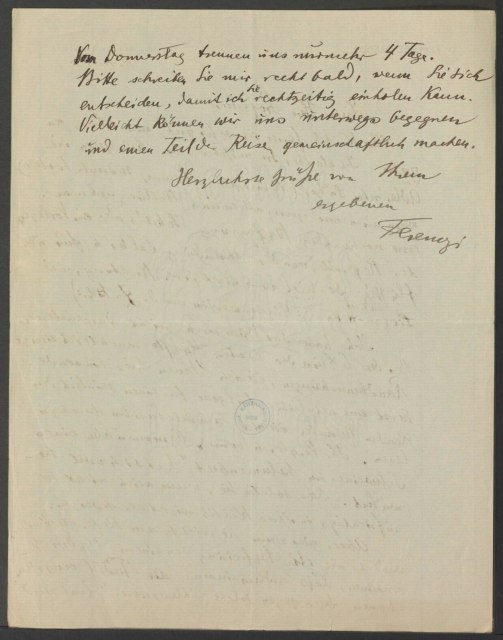 Vom Donnerstag trennen uns nurmehr 4 Tage.
Bitte schreiben Sie mir recht bald, wenn Sie sich
entscheiden, damit ich Sie rechtzeitig einholen kann.
Vielleicht können wir uns unterwegs begegnen
und einen Teil der Reise gemeinschaftlich machen.
Herzlichste Grüße von Ihrem
ergebenen
Ferenczi